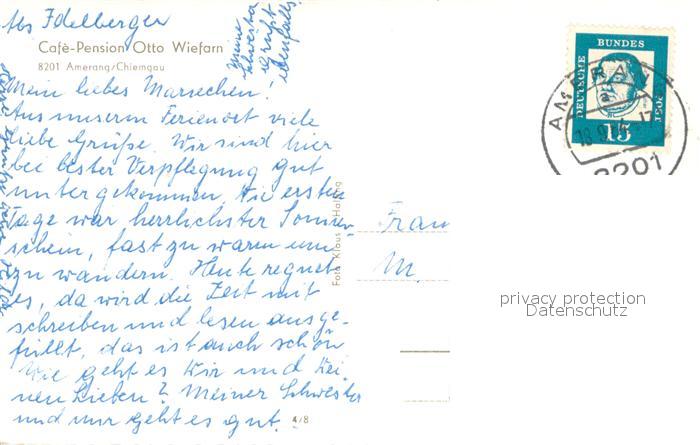 Abs Idelberger
Cafè-Pension Otto Wiefarn
8201 Amerang/Chiemgau
Meine
Schwester
grüßt
ebenfalls
Mein liebes Marsechen!
Aus unserem Ferienort viele
liebe Grüße. Wir sind hier
bei bester Verpflegung gut
untergekommen. Die ersten
Tage war herrlichster Sonnen
schein, fast zu warm um
zu wandern. Heute regnet
es, da wird die Zeit mit
schreiben und lesen ausge-
füllt, das ist auch schön
Wie geht es Dir und Dei-
nen Lieben? Meiner Schwester
und mir geht es gut.
4/8
Foto Klaus
Frau
M.
DEUTSCHE
BUNDES
POST
15
AMERANG
18.9.
17
8201
privacy protection
Datenschutz